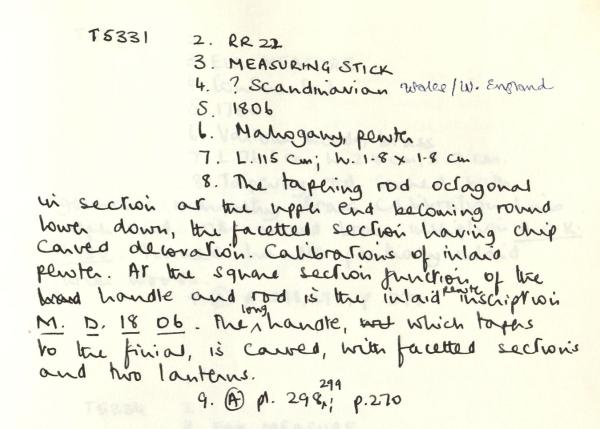 T5331 2. RR 22
3. MEASURING STICK
4. ? Scandinavian Wales/W. England
5. 1806
6. Mahogany, pewter
7. L. 115 cm; W. 1·8 x 1·8 cm
8. The tapering rod octagonal
in section at the upper end becoming round
lower down, the facetted section having chip
carved decoration. Calibrations of inlaid
pewter. At the square section junction of the
handle and rod is the inlaid pewter inscription
M. D. 18 06. The long handle, which tapers
to the finial, is carved, with facetted sections
and two lanterns.
9. A pl. 298, 299; p.270